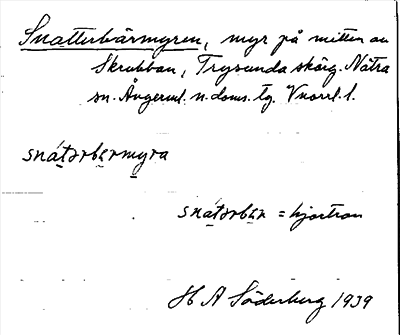 Snatterbärmyren, myr på mitten av
Skrubban, Trysunda skärg. Nätra
sn. Ångerml. n. doms. tg. Vnorrl. l.
snátərbɛrmyra
snátərbɛr = hjortron
H A Söderberg 1939